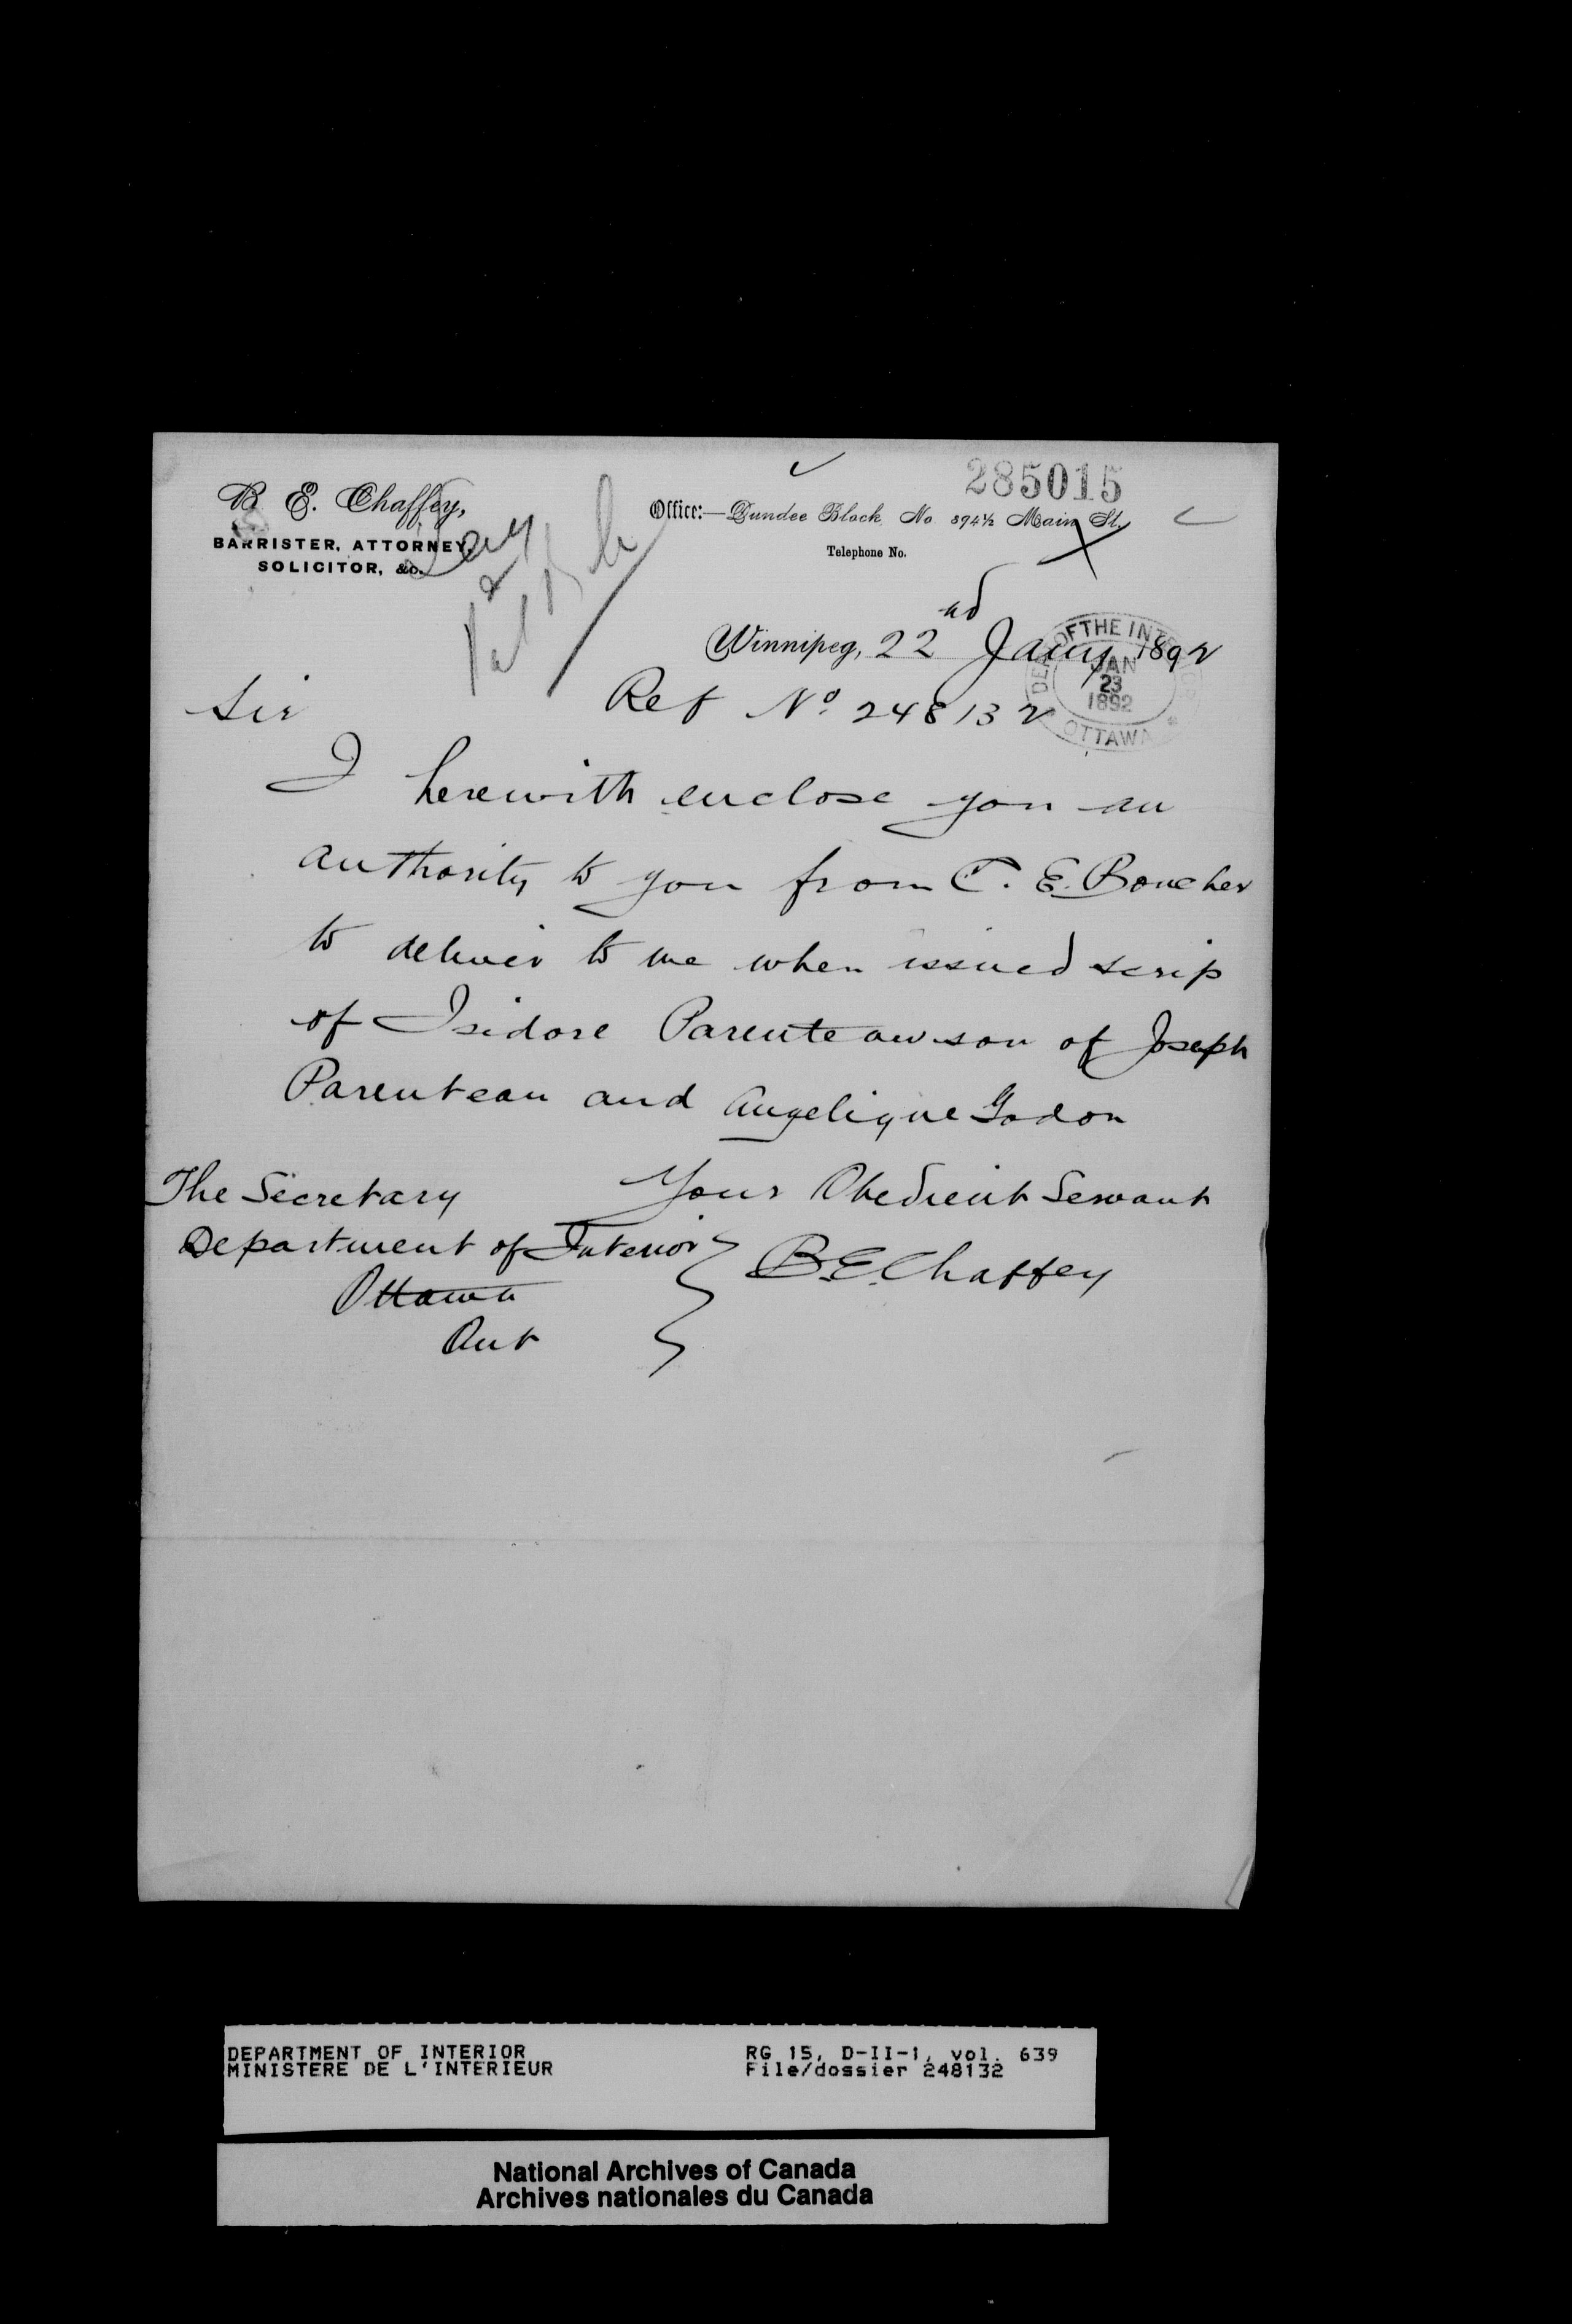 285015
B. E. Chaffey,
BARRISTER, ATTORNEY,
SOLICITOR, &c.
Office:—Dundee Block, No 394½ Main St.
Telephone No.
Winnipeg, 22nd Jany 1892
DEPT OF THE INTERIOR
JAN
23
1892
OTTAWA
Ref No. 248132
Sir
I herewith enclose you an
authority to you from C. E. Boucher
to deliver to me when issued scrip
of Isidore Parenteau son of Joseph
Parenteau and Angelique Godon
Your Obedient Servant
BE Chaffey
The Secretary
Department of Interior
Ottawa
Ont
DEPARTMENT OF INTERIOR
MINISTERE DE L'INTERIEUR
RG 15, D-II-1, vol. 639
File/dossier 248132
National Archives of Canada
Archives nationales du Canada